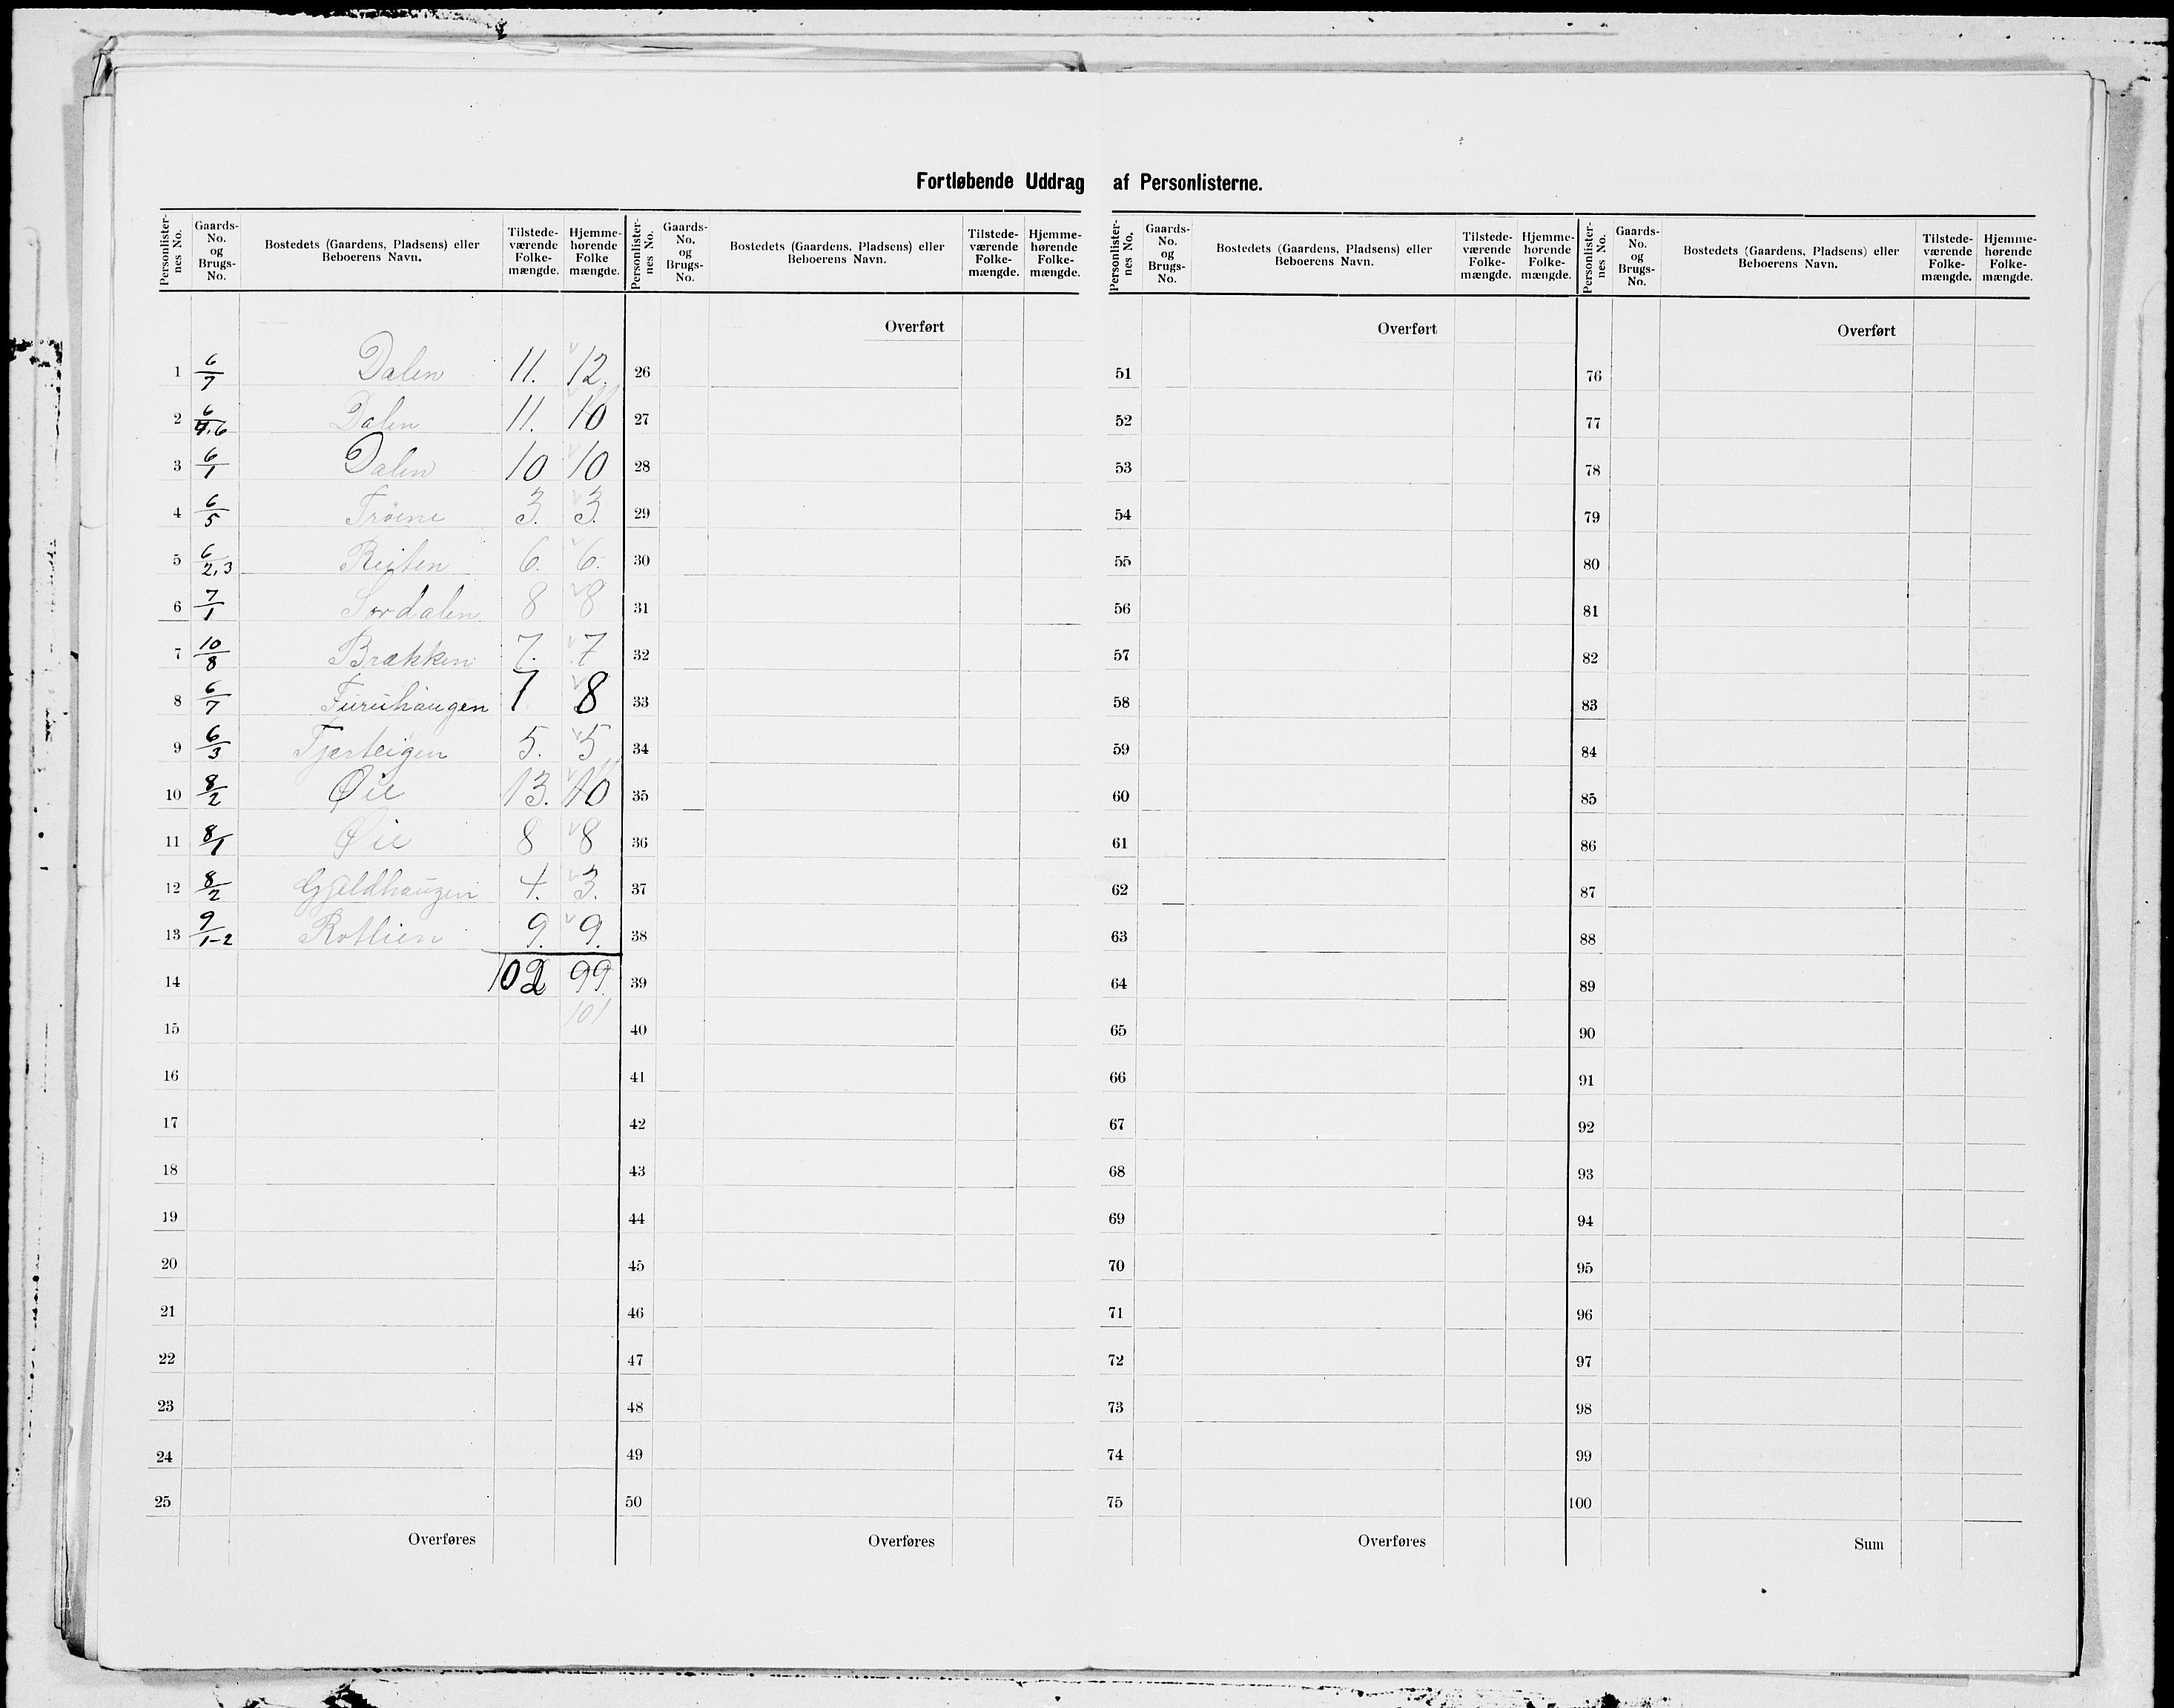 Fortløbende Uddrag af Personlisterne.
Personlister-nes No. | Gaards-No. og Brugs-No. | Bostedets (Gaardens, Pladsens) eller Beboerens Navn. | Tilstede-værende Folke-mængde. | Hjemme-hørende Folke mængde.
1 6/7 Dalen 11. 12.
2 6/4,6 Dalen 11. 10
3 6/1 Dalen 10 10
4 6/5 Trøene 3. 3.
5 6/2,3 Reiten 6. 6.
6 7/1 Sørdalen 8 8
7 10/8 Brækken 7. 7
8 6/7 Furuhaugen 7 8
9 6/3 Tjærteigen 5. 5
10 8/2 Øie 13. 10
11 8/1 Øie 8 8
12 8/2 Gjeldhaugen 4. 3.
13 9/1-2 Rotlien 9. 9.
14 102 99
15 101
16
17
18
19
20
21
22
23
24
25
Overføres
Personlister-nes No. | Gaards-No. og Brugs-No. | Bostedets (Gaardens, Pladsens) eller Beboerens Navn. | Tilstede-værende Folke-mængde. | Hjemme-hørende Folke-mængde.
Overført
26
27
28
29
30
31
32
33
34
35
36
37
38
39
40
41
42
43
44
45
46
47
48
49
50
Overføres
Personlister-nes No. | Gaards-No. og Brugs-No. | Bostedets (Gaardens, Pladsens) eller Beboerens Navn. | Tilstede-værende Folke-mængde. | Hjemme-hørende Folke-mængde.
Overført
51
52
53
54
55
56
57
58
59
60
61
62
63
64
65
66
67
68
69
70
71
72
73
74
75
Overføres
Personlister-nes No. | Gaards-No. og Brugs-No. | Bostedets (Gaardens, Pladsens) eller Beboerens Navn. | Tilstede-værende Folke-mængde. | Hjemme-hørende Folke-mængde.
Overført
76
77
78
79
80
81
82
83
84
85
86
87
88
89
90
91
92
93
94
95
96
97
98
99
100
Sum